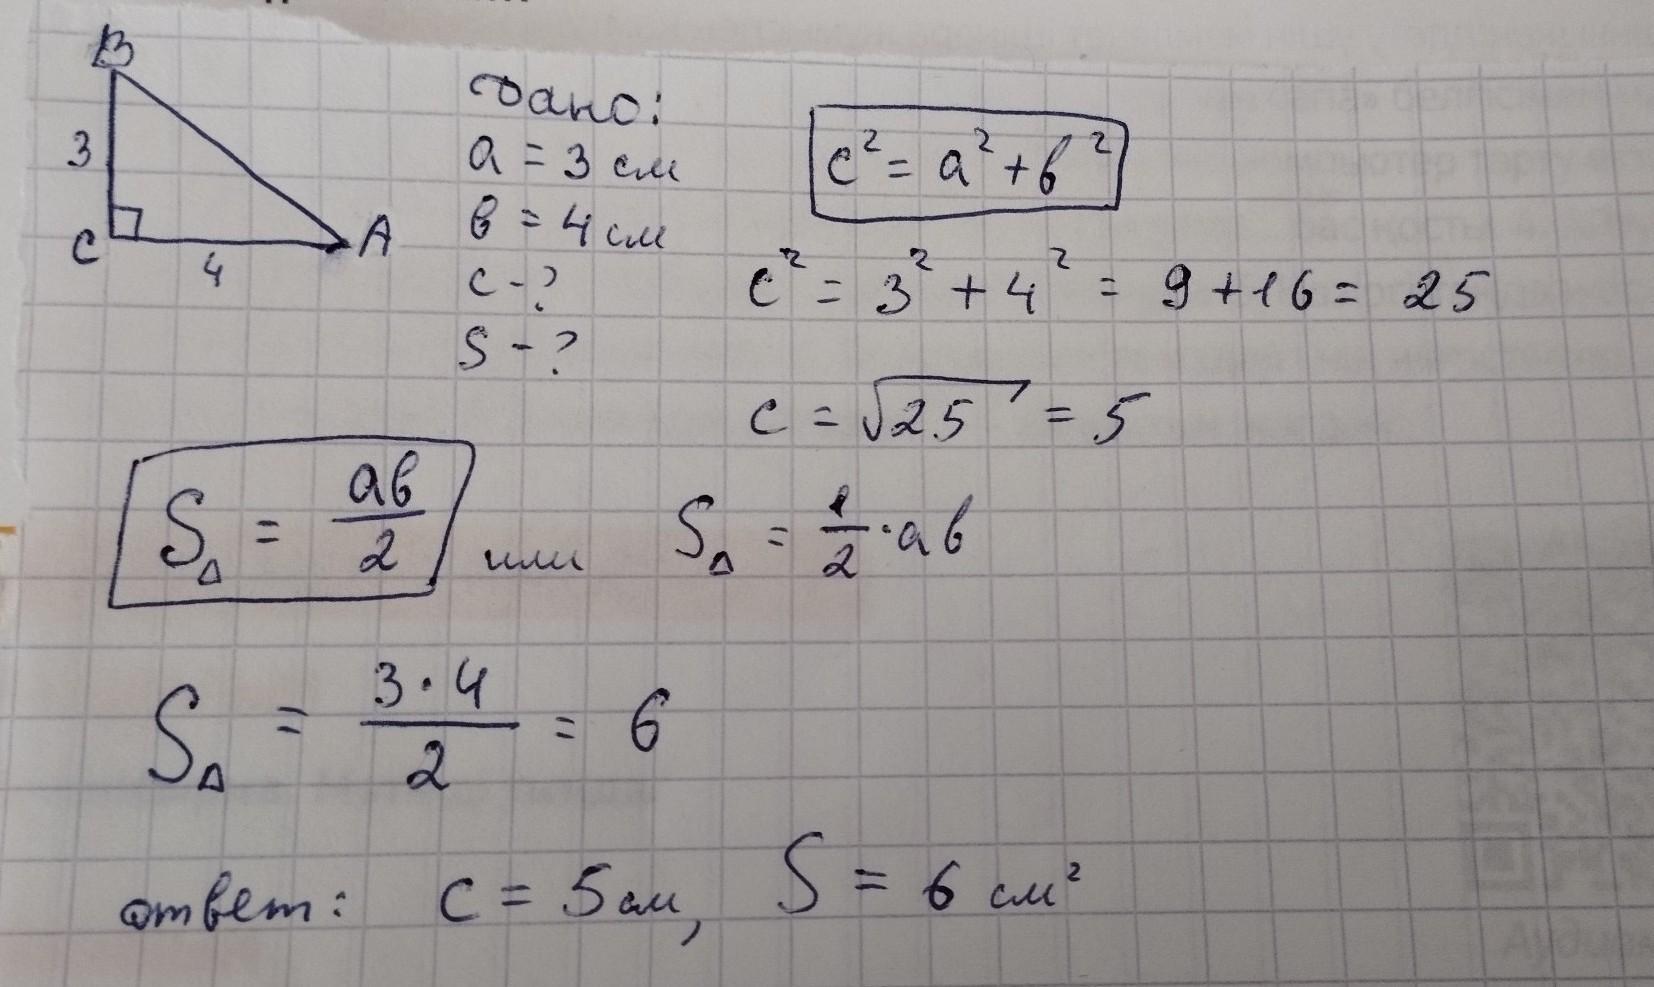 B
3
C
4
A
Дано:
a = 3 см
в = 4 см
c - ?
S - ?
c² = a² + в²
c² = 3² + 4² = 9 + 16 = 25
c = √25 = 5
S△ = ав/2 или S△ = 1/2 · ав
S△ = 3·4/2 = 6
ответ: c = 5 см, S = 6 см²